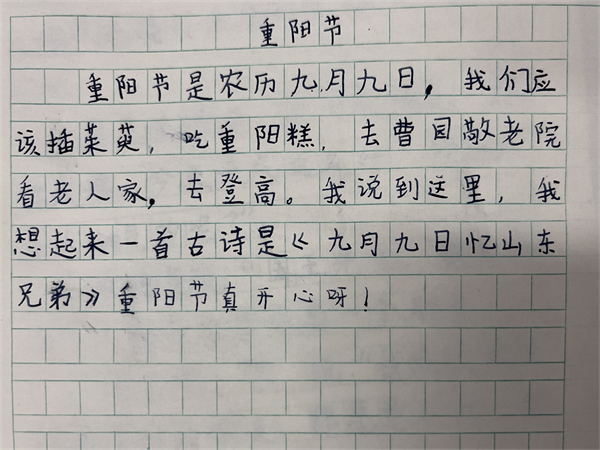 重阳节
重阳节是农历九月九日，我们应
该插茱萸，吃重阳糕，去曹园敬老院
看老人家，去登高。我说到这里，我
想起来一首古诗是《九月九日忆山东
兄弟》重阳节真开心呀！